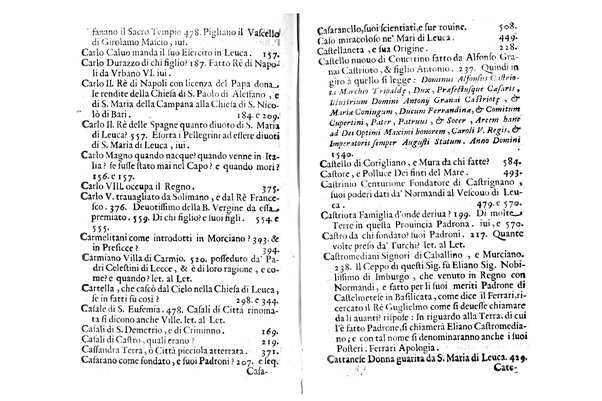 fanano il Sacro Tempio 478. Pigliano il Vascello
di Girolamo Mascio, iui.
Carlo Caluo manda il suo Esercito in Leuca. 157.
Carlo Durazzo di chi figlio? 187. Fatto Rè di Napo-
li da Vrbano VI. iui.
Carlo II. Rè di Napoli con licenza del Papa dona
le rendite della Chiesa di S. Paolo di Alessano, e
di S. Maria della Campana alla Chiesa di S. Nico-
lò di Bari. 184 e 209.
Carlo II. Rè delle Spagne quanto diuoto di S. Maria
di Leuca? 557. Esorta i Pellegrini ad essere diuoti
di S. Maria di Leuca, iui.
Carlo Magno quando nacque? quando venne in Ita-
lia? se fusse stato mai nel Capo? e quando morì?
156. e 157.
Carlo VIII. occupa il Regno. 375.
Carlo V. trauagliato da Solimano, e dal Rè France-
sco. 376. Deuotissimo della B. Vergine da essa
premiato. 559. Di chi figlio? e suoi figli. 554. e
555.
Carmelitani come introdotti in Morciano? 393. &
in Presicce? 394.
Carmiano Villa di Carmio. 520. posseduto da' Pa-
dri Celestini di Lecce, & è di loro ragione, e co-
me? e quando? let. al Let.
Cartella, che cascò dal Cielo nella Chiesa di Leuca,
se in fatti fu così? 298. e 344.
Casale di S. Eufemia. 478. Casali di Città rinoma-
ta si dicono anche Ville. let. al Let.
Casali di S. Demetrio, e di Criminno. 169.
Casali di Castro, quali erano? 221.
Cassandra Terra, ò Città picciola atterrata. 371.
Casarano come fondato, e suoi Padroni? 207. e seq.
Casa-
Casaranello, suoi scientiati, e sue rouine. 508.
Caso miracoloso ne' Mari di Leuca. 449.
Castellaneta, e sua Origine. 228.
Castello nuouo di Couertino fatto da Alfonso Gra-
nai Castrioto, & figlio Antonio. 237. Quindi in
giro à quello si legge: Dominus Alfonsus Castrio-
ta Marchio Tripaldę, Dux, Præfectusque Casaris,
Illustrium Domini Antonij Granai Castriotę, &
Maria Coniugum, Ducum Ferrandinæ, & Comitum
Cupertini, Pater, Patruus, & Socer, Arcem hanc
ad Dei Optimi Maximi honorem, Caroli V. Regis, &
Imperatoris semper Augusti Statum. Anno Domini
1540.
Castello di Corigliano, e Mura da chi fatte? 584.
Castore, e Polluce Dei finti del Mare. 493.
Castrinio Centurione Fondatore di Castrignano,
suoi poderi dati da' Normandi al Vescouo di Leu-
ca. 479. e 570.
Castriota Famiglia d'onde deriua? 199. Di molte
Terre in questa Prouincia Padrona. iui, e 570.
Castro da chi fondato? suoi Padroni. 217. Quante
volte preso da' Turchi? let. al Let.
Castromediani Signori di Caballino, e Murciano.
238. Il Ceppo di questi Sig. fu Eliano Sig. Nobi-
lissimo di Imburgo, che venuto in Regno con
Normandi, e fatto per i suoi meriti Padrone di
Castelmetese in Basilicata, come dice il Ferrari, ri-
cercato il Rè Guglielmo come si deuesse chiamare
da lì auanti? rispose: In riguardo alla Terra, di cui
l'è fatto Padrone, si chiamerà Eliano Castromedia-
no; e con tal nome si denominaranno anche i suoi
Posteri. Ferrari Apologia.
Cattanese Donna guarita da S. Maria di Leuca. 429.
Cate-